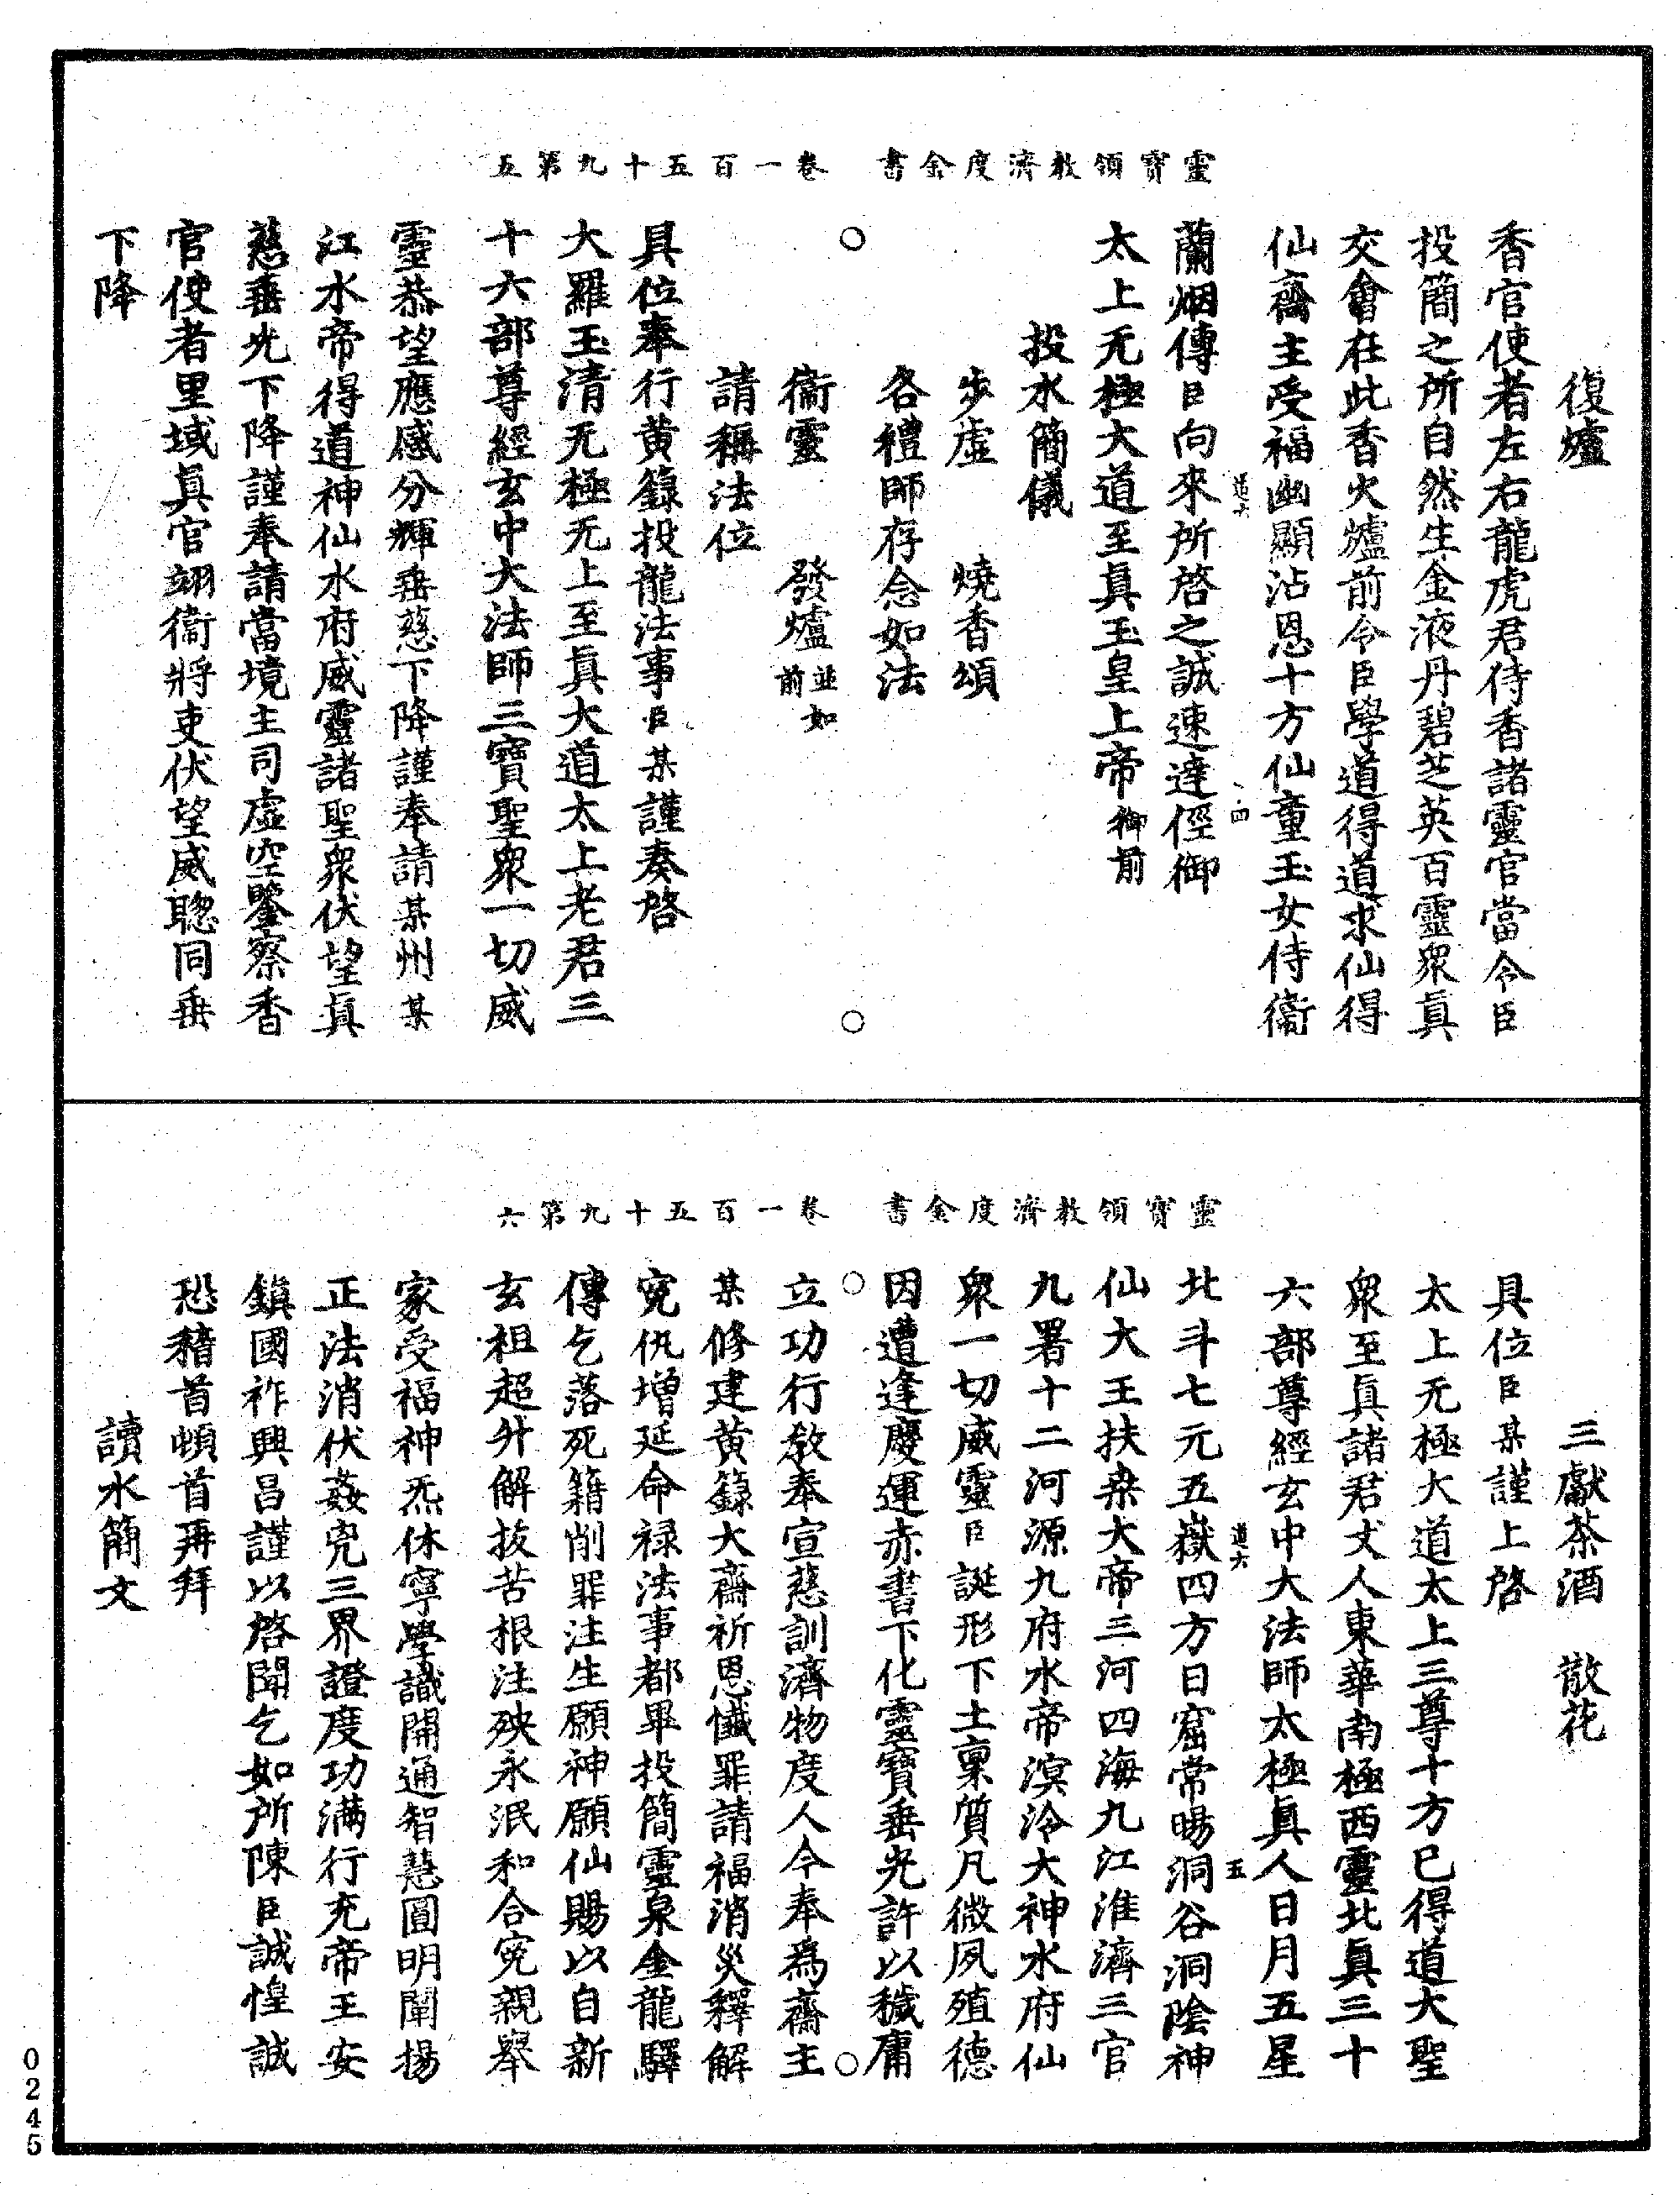 靈寶領教濟度金書　卷一百五十九第五
復爐
香官使者左右龍虎君侍香諸靈官當令臣
投簡之所自然生金液丹碧芝英百靈衆眞
交會在此香火爐前令臣學道得道求仙得
仙齋主受福幽顯沾恩十方仙童玉女侍衞
蘭烟傳臣向來所啓之誠速達徑御
道六　四
太上无極大道至眞玉皇上帝御前
投水簡儀
步虛　燒香頌
各禮師存念如法
衞靈　發爐並如前
請稱法位
具位奉行黃籙投龍法事臣某謹奏啓
大羅玉清无極无上至眞大道太上老君三
十六部尊經玄中大法師三寶聖衆一切威
靈恭望應感分輝垂慈下降謹奉請某州某
江水帝得道神仙水府威靈諸聖衆伏望眞
慈垂光下降謹奉請當境主司虛空鑒察香
官使者里域眞官翊衞將吏伏望威聰同垂
下降
靈寶領教濟度金書　卷一百五十九第六
三獻茶酒　散花
具位臣某謹上啓
太上无極大道太上三尊十方已得道大聖
衆至眞諸君丈人東華南極西靈北眞三十
六部尊經玄中大法師太極眞人日月五星
北斗七元五嶽四方日窟常暘洞谷洞陰神
道六　五
仙大王扶桒大帝三河四海九江淮濟三官
九署十二河源九府水帝溟泠大神水府仙
衆一切威靈臣誕形下土稟質凡微夙殖德
因遭逢慶運赤書下化靈寶垂光許以穢庸
立功行教奉宣慈訓濟物度人今奉爲齋主
某修建黃籙大齋祈恩懺罪請福消災釋解
寃仇增延命祿法事都畢投簡靈泉金龍驛
傳乞落死籍削罪注生願神願仙賜以自新
玄祖超升解拔苦根注殃永泯和合寃親舉
家受福神炁休寧學識開通智慧圓明闡揚
正法消伏姦兇三界證度功滿行充帝王安
鎭國祚興昌謹以啓聞乞如所陳臣誠惶誠
恐稽首頓首再拜
讀水簡文
0245